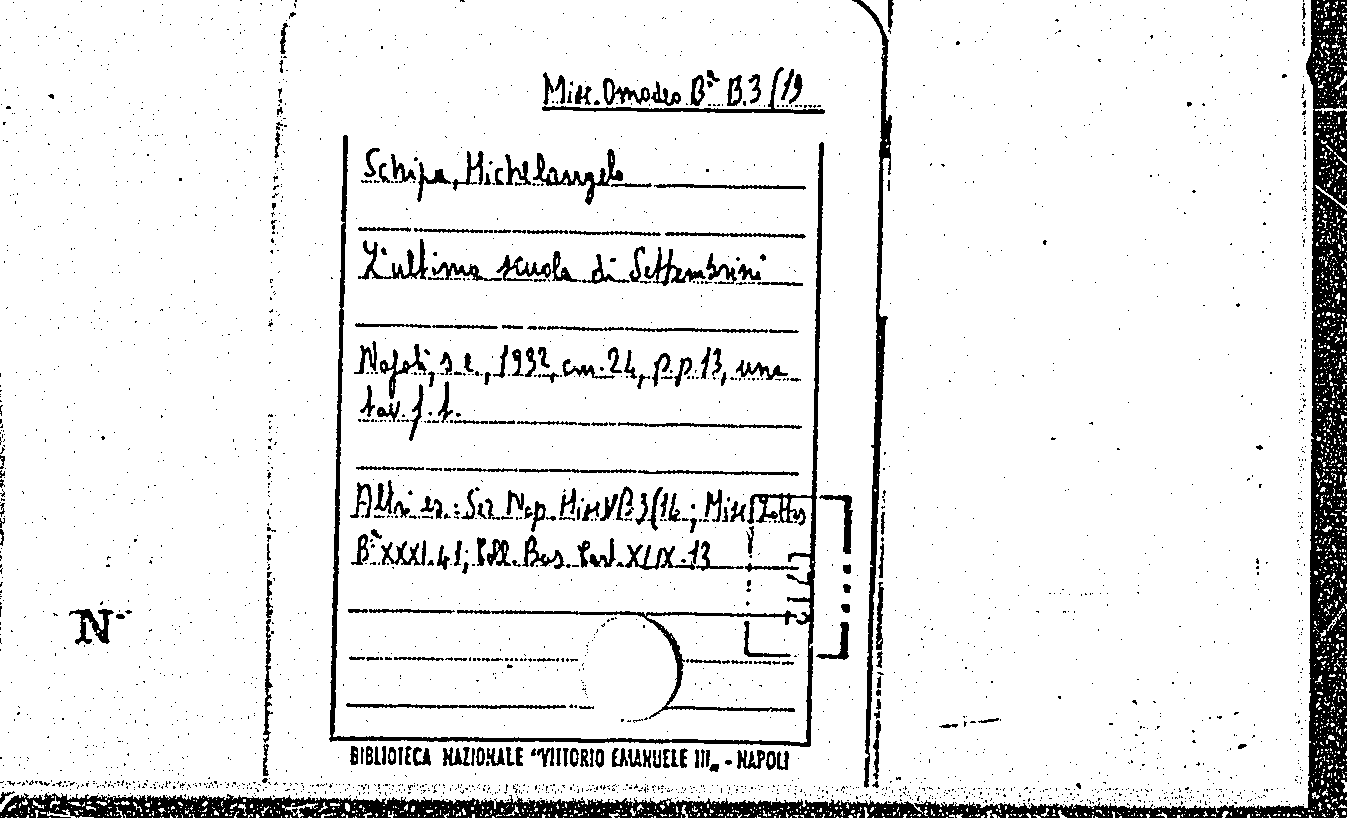 Misc. Omodeo Bª B.3/19
Schipa, Michelangelo
L'ultima scuola di Settembrini
Napoli, s.e., 1932, cm. 24, p.p. 13, una
tav. f.t.
Altri es.: Sez Nap. Misc VB3/16; Misc
Bª XXXI.41; Coll. Bas. XLIX.13
N
BIBLIOTECA NAZIONALE "VITTORIO EMANUELE III„ - NAPOLI